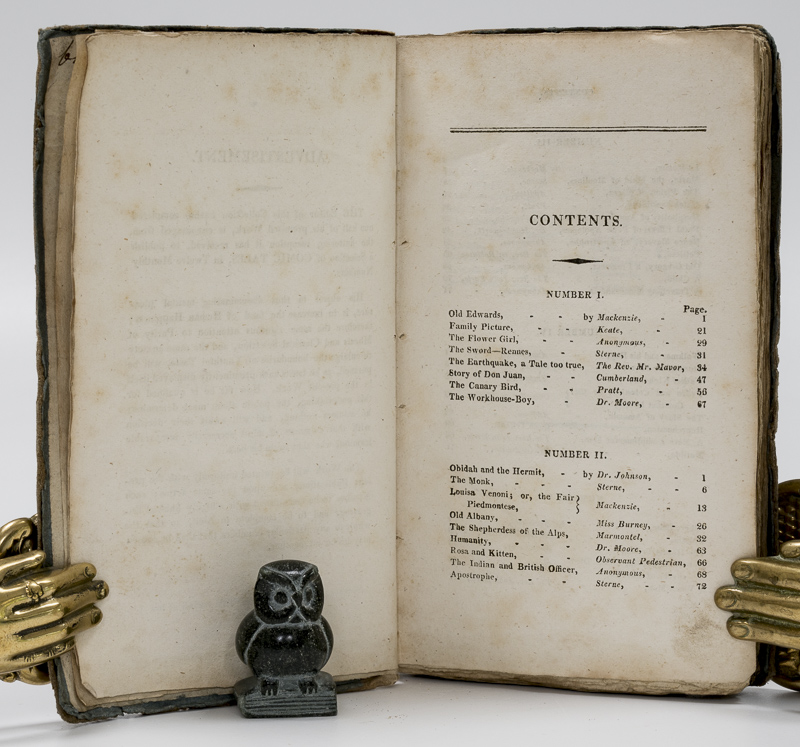 CONTENTS.
NUMBER I.
Page.
Old Edwards, - - by Mackenzie, - 1
Family Picture, - - Keate, - 21
The Flower Girl, - - Anonymous, - 29
The Sword—Rennes, - Sterne, - 31
The Earthquake, a Tale too true, The Rev. Mr. Mavor, 34
Story of Don Juan, - - Cumberland, - 47
The Canary Bird, - - Pratt, - 56
The Workhouse-Boy, - Dr. Moore, - 67
NUMBER II.
Obidah and the Hermit, - by Dr. Johnson, - 1
The Monk, - - - Sterne, - - 6
Louisa Venoni; or, the Fair }
Piedmontese, } Mackenzie, - 13
Old Albany, - - - Miss Burney, - 26
The Shepherdess of the Alps, Marmontel, - 32
Humanity, - - - Dr. Moore, - 63
Rosa and Kitten, - - Observant Pedestrian, 66
The Indian and British Officer, Anonymous, - 68
Apostrophe, - - Sterne, - - 72